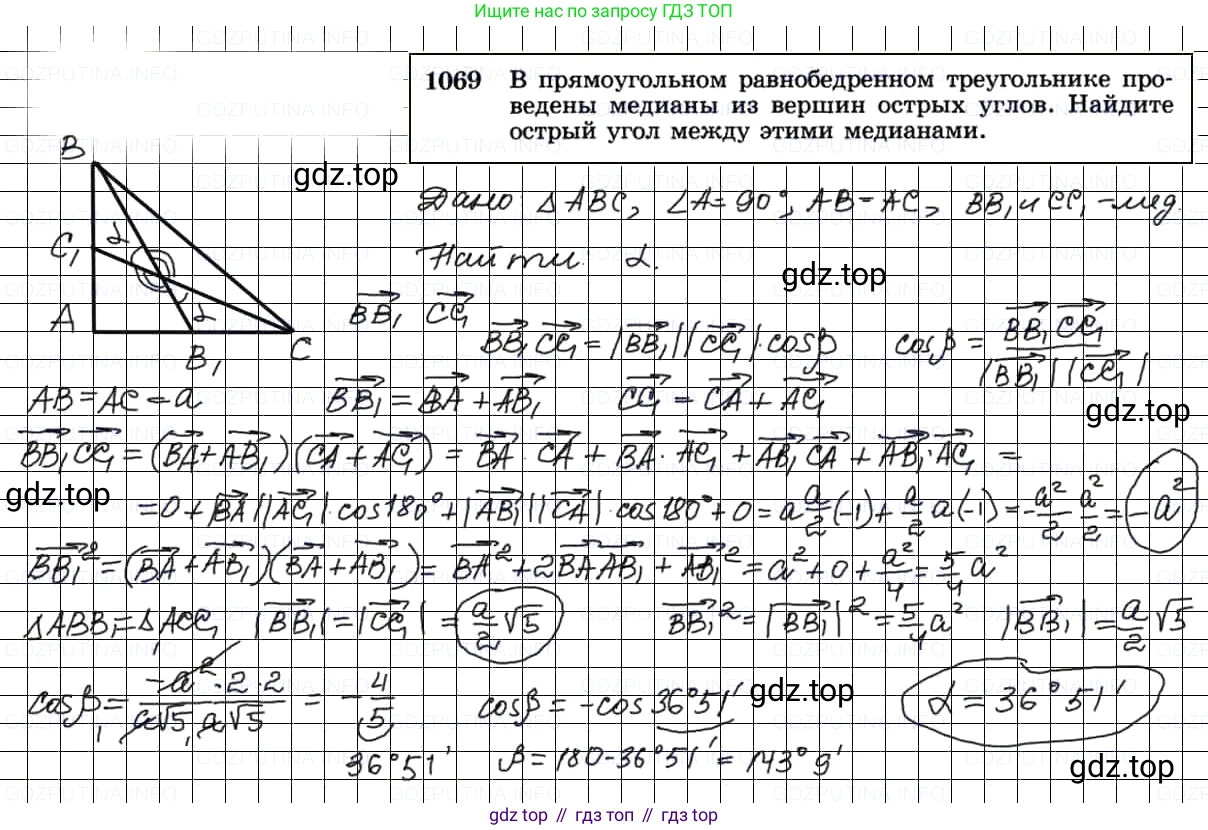 Ищите нас по запросу ГДЗ ТОП
1069 В прямоугольном равнобедренном треугольнике про-
ведены медианы из вершин острых углов. Найдите
острый угол между этими медианами.
B
gdz.top
Дано: △ABC, ∠A=90°, AB=AC, BB₁ и CC₁ -мед.
C₁ α
Найти: α.
gdz.top
A α
B₁ C
BB₁ CC₁
BB₁ CC₁ = |BB₁||CC₁|·cosβ cosβ = BB₁ CC₁ / |BB₁||CC₁|
AB=AC=a BB₁ = BA + AB₁ CC₁ = CA + AC₁
gdz.top
BB₁ CC₁ = (BA+AB₁)(CA+AC₁) = BA·CA + BA·AC₁ + AB₁ CA + AB₁·AC₁ =
gdz.top
=0+|BA||AC₁|·cos180°+|AB₁||CA|·cos180°+0=a a/2 (-1)+ a/2 a(-1)=-a²/2 - a²/2 = -a²
BB₁² = (BA+AB₁)(BA+AB₁) = BA²+2BA AB₁ + AB₁² = a²+0+a²/4 = 5/4 a²
△ABB₁=△ACC₁ |BB₁|=|CC₁| = a/2 √5 BB₁² = |BB₁|² = 5/4 a² |BB₁| = a/2 √5
cosβ = -a²·2·2 / a√5·a√5 = -4/5 cosβ = -cos36°51′ gdz.top α = 36°51′
36°51′ β = 180-36°51′ = 143°9′
gdz.top
gdz.top // гдз.топ // gdz.top
GDZPUTINA.INFO